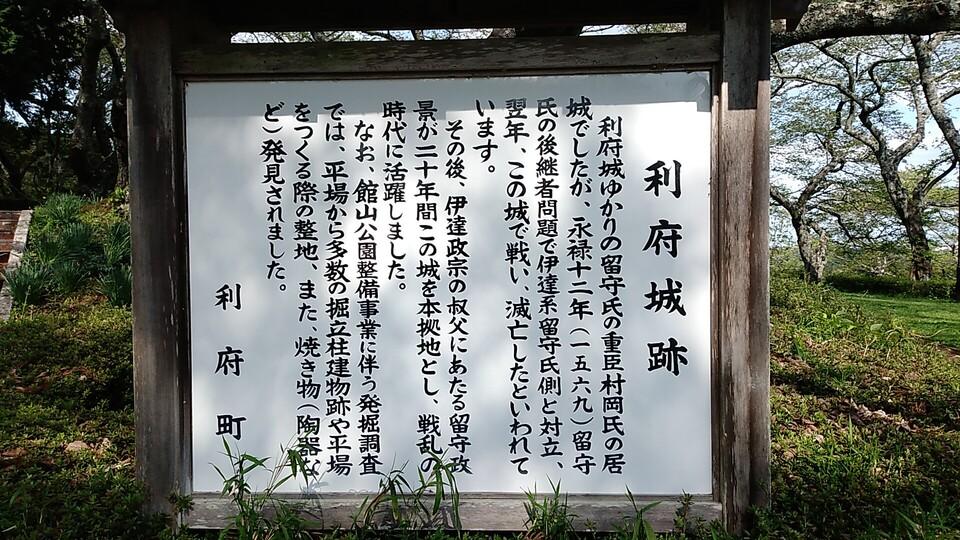 利府城跡
利府城ゆかりの留守氏の重臣村岡氏の居
城でしたが、永禄十二年(一五六九)留守
氏の後継者問題で伊達系留守氏側と対立、
翌年、この城で戦い、滅亡したといわれて
います。
その後、伊達政宗の叔父にあたる留守政
景が二十年間この城を本拠地とし、戦乱の
時代に活躍しました。
なお、館山公園整備事業に伴う発掘調査
では、平場から多数の掘立柱建物跡や平場
をつくる際の整地、また、焼き物(陶器な
ど)発見されました。
利府町